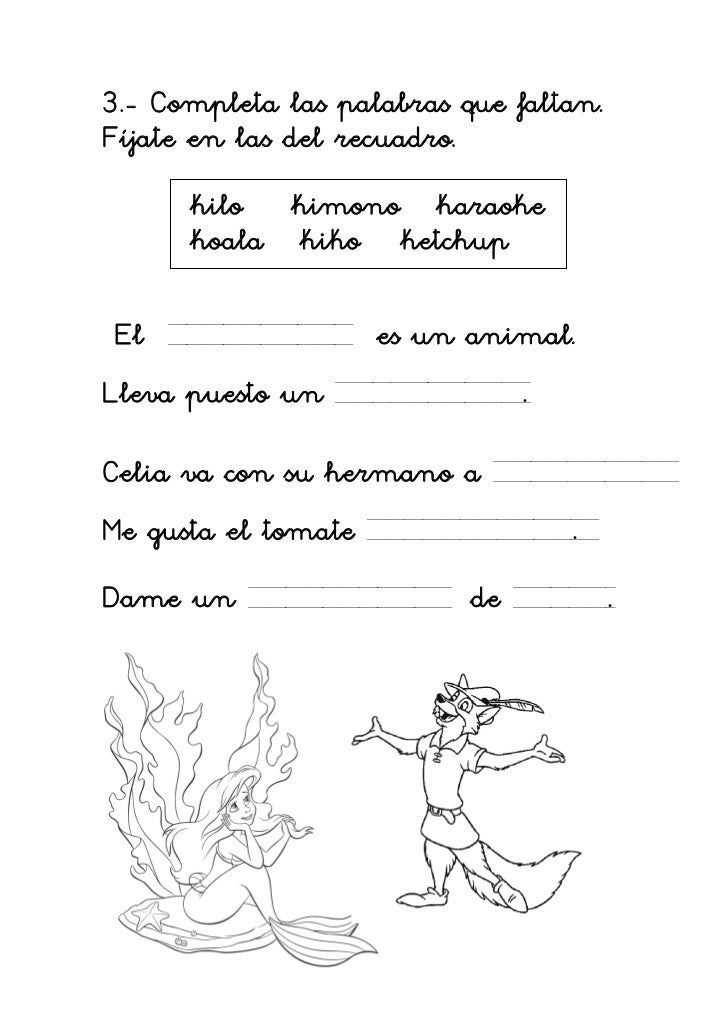 3.- Completa las palabras que faltan.
Fíjate en las del recuadro.
kilo kimono karaoke
koala kiko ketchup
El es un animal.
Lleva puesto un .
Celia va con su hermano a
Me gusta el tomate .
Dame un de .